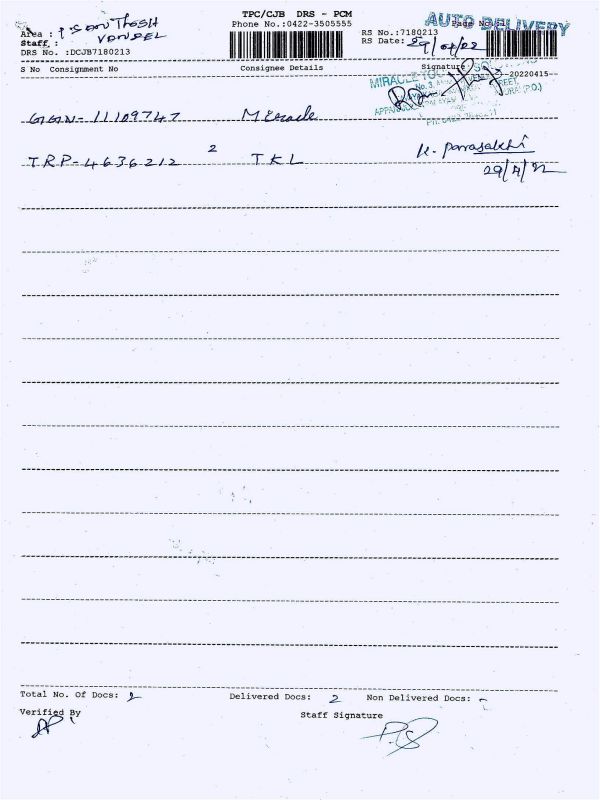 TPC/CJB DRS - PCM
AUTO DELIVERY
Area : P SANTHOSH
Phone No.:0422-3505555
Page No
Staff :
RS No.:7180213
DRS No. :DCJB7180213
RS Date: 29/04/22
S No Consignment No Consignee Details Signature
--20220415--
MIRACLE
No. 3,
STREET,
GGN-11109747 Miracle
TRP-4636212 2 TKL
29/4/22
Total No. Of Docs: 2 Delivered Docs: 2 Non Delivered Docs:
Verified By
Staff Signature
P.S